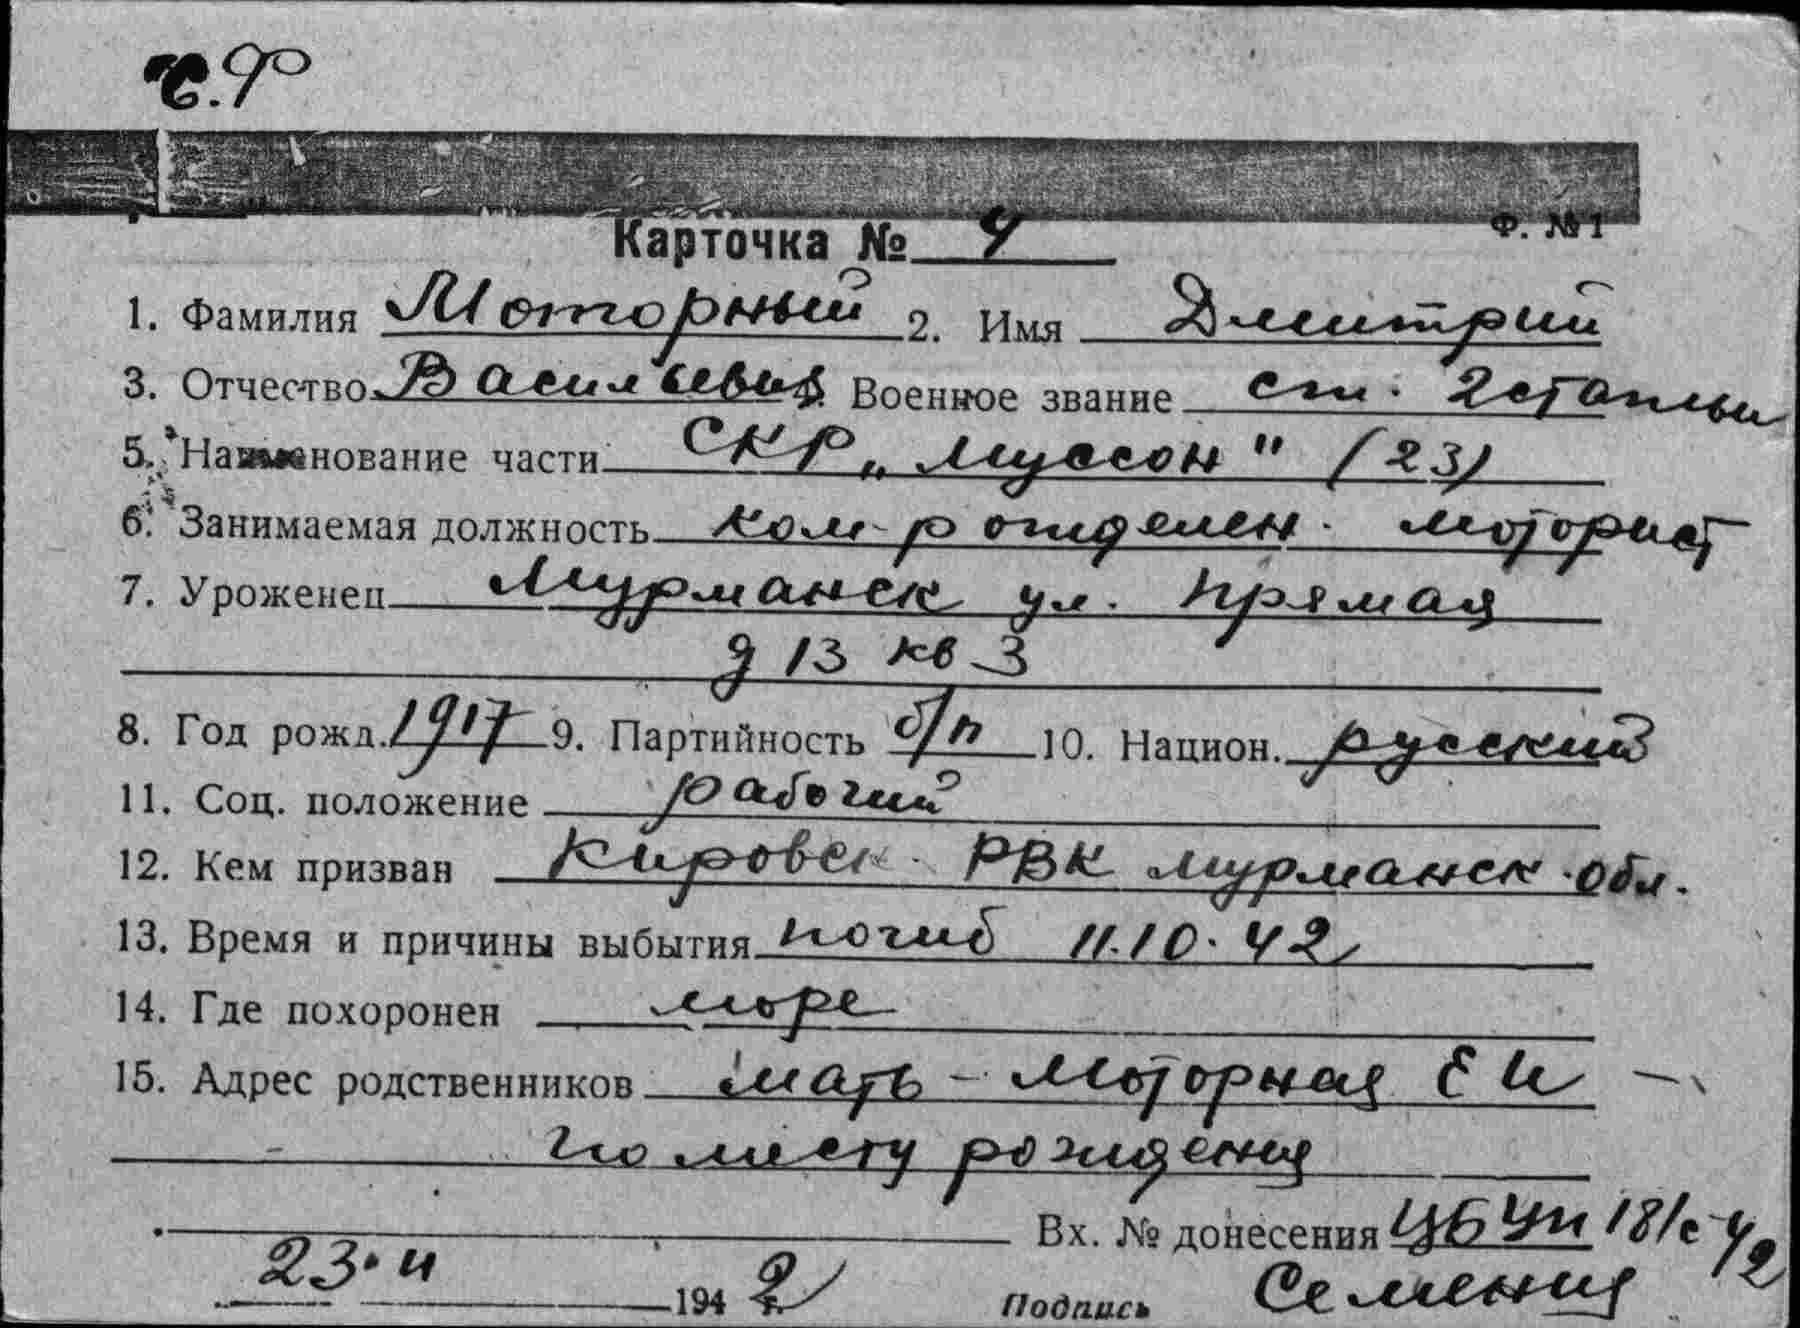 С.Ф
Ф. №1
Карточка № 4
1. Фамилия Моторный 2. Имя Дмитрий
3. Отчество Васильевич Военное звание ст. 2 статьи
5. Наименование части СКР „Муссон" (23)
6. Занимаемая должность ком-р отделен. моторист
7. Уроженец Мурманск ул. Прямая
д 13 кв 3
8. Год рожд. 1917 9. Партийность б/п 10. Национ. русский
11. Соц. положение рабочий
12. Кем призван Кировск. РВК Мурманск. обл.
13. Время и причины выбытия погиб 11.10.42
14. Где похоронен море
15. Адрес родственников мать - Моторная Е И
по месту рождения
Вх. № донесения ЦБУП 18/с 42
23.11 1942 г.
Подпись